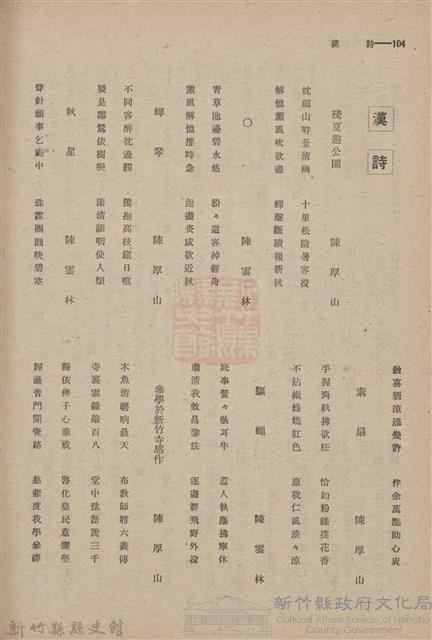 漢詩——104
漢詩
殘夏遊公園　陳厚山
枕頭山畔景清幽　十里松陰暑客投
解慍薰風吹欲盡　蟬聲斷續報新秋
○　陳雲林
青草池邊碧水悠　紛々遊客掉輕舟
薰風解慍推時急　送盡炎威欲近秋
蟬琴　陳厚山
不同客醉枕邊聽　獨抱高枝鎮日
疑是鸞依樹　清韻咽使人煩
秋星　陳雲林
穿針韻事乞庭中　珠露團圓映碧空
融喜新涼滋幾許　伴余萬點助心爽
素扇　陳厚山
手握齊紈拂欲狂　恰如粉蝶撲花香
不沾纖綠嬌紅色　惠我仁風淡々涼
驅蠅　陳雲林
底事營々亂耳牛　惹人執麈拂寧休
肅清我效昌黎法　逐盡群飛野外投
參學於新竹寺感作　陳厚山
木魚清響响晨天　布教師將六義傳
寺裏雲鐘敲百八　堂中法語說三千
歸依佛子心垂戒　啓化皇民意彌堅
經誦普門開覺路　慈悲度我學參禪
新竹縣縣史館
新竹縣政府文化局
Cultural Affairs Bureau of Hsinchu County Government